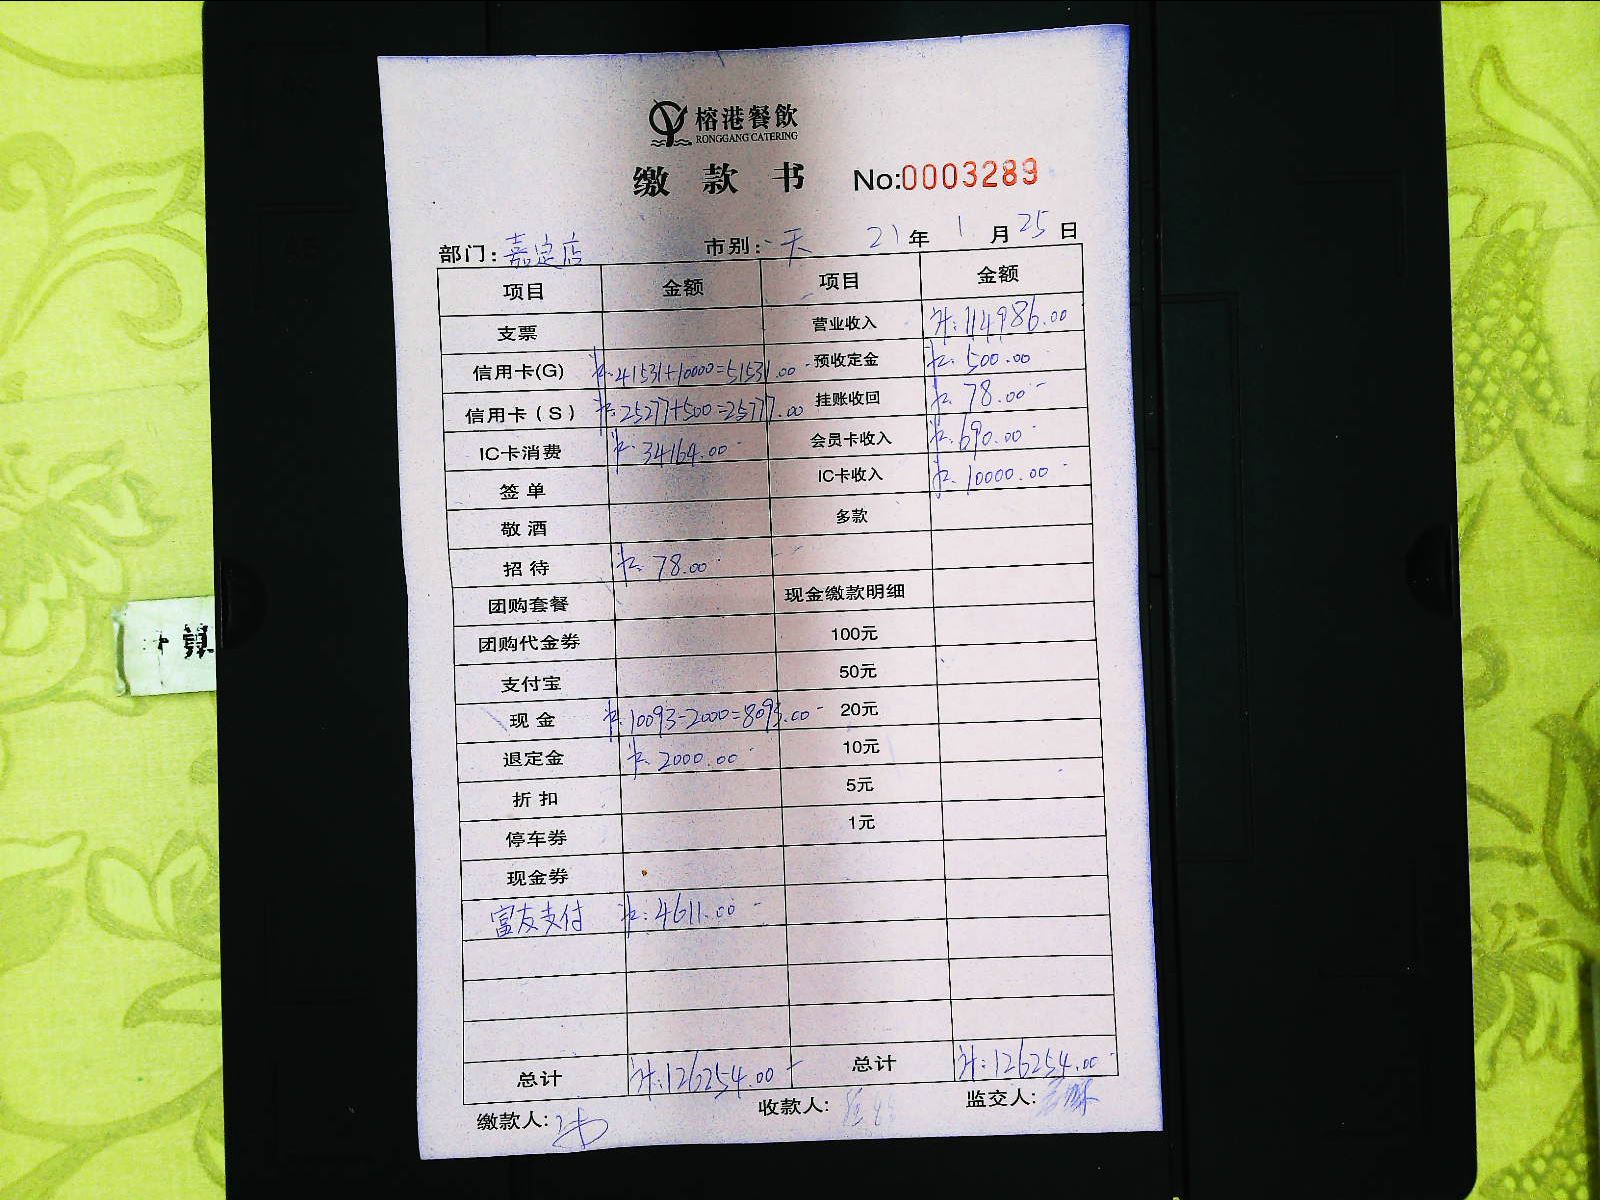 榕港餐飲
RONGGANG CATERING
缴款书 No:0003289
部门:嘉定店 市别:天 21年1月25日
项目 金额 项目 金额
支票 营业收入 计:114986.00
信用卡(G) 计:41531+10000=51531.00 预收定金 计:500.00
信用卡(S) 计:25277+500=25777.00 挂账收回 计:78.00
IC卡消费 计:34164.00 会员卡收入 计:690.00
签单 IC卡收入 计:10000.00
敬酒 多款
招待 计:78.00
团购套餐 现金缴款明细
团购代金券 100元
支付宝 50元
现金 计:10093-2000=8093.00 20元
退定金 计:2000.00 10元
折扣 5元
停车券 1元
现金券
富友支付 计:4611.00
总计 计:126254.00 总计 计:126254.00
缴款人: 收款人: 监交人: